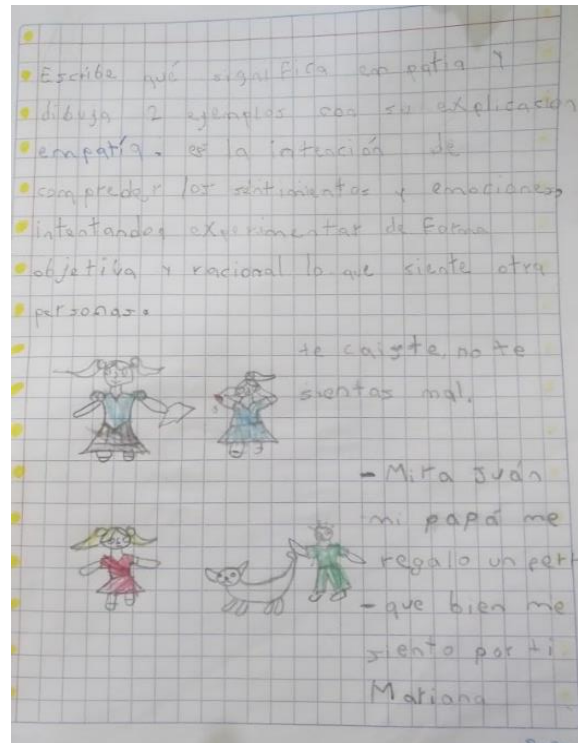 Escribe qué significa empatia y
dibuja 2 ejemplos con su explicación
empatía. es la intención de
compreder los sentimientos y emociones,
intentandos experimentar de Forma
objetiva y racional lo que siente otra
personas.
te caiste, no te
sientas mal.
- Mira Juán
mi papá me
regalo un perr
- que bien me
siento por ti
Mariana